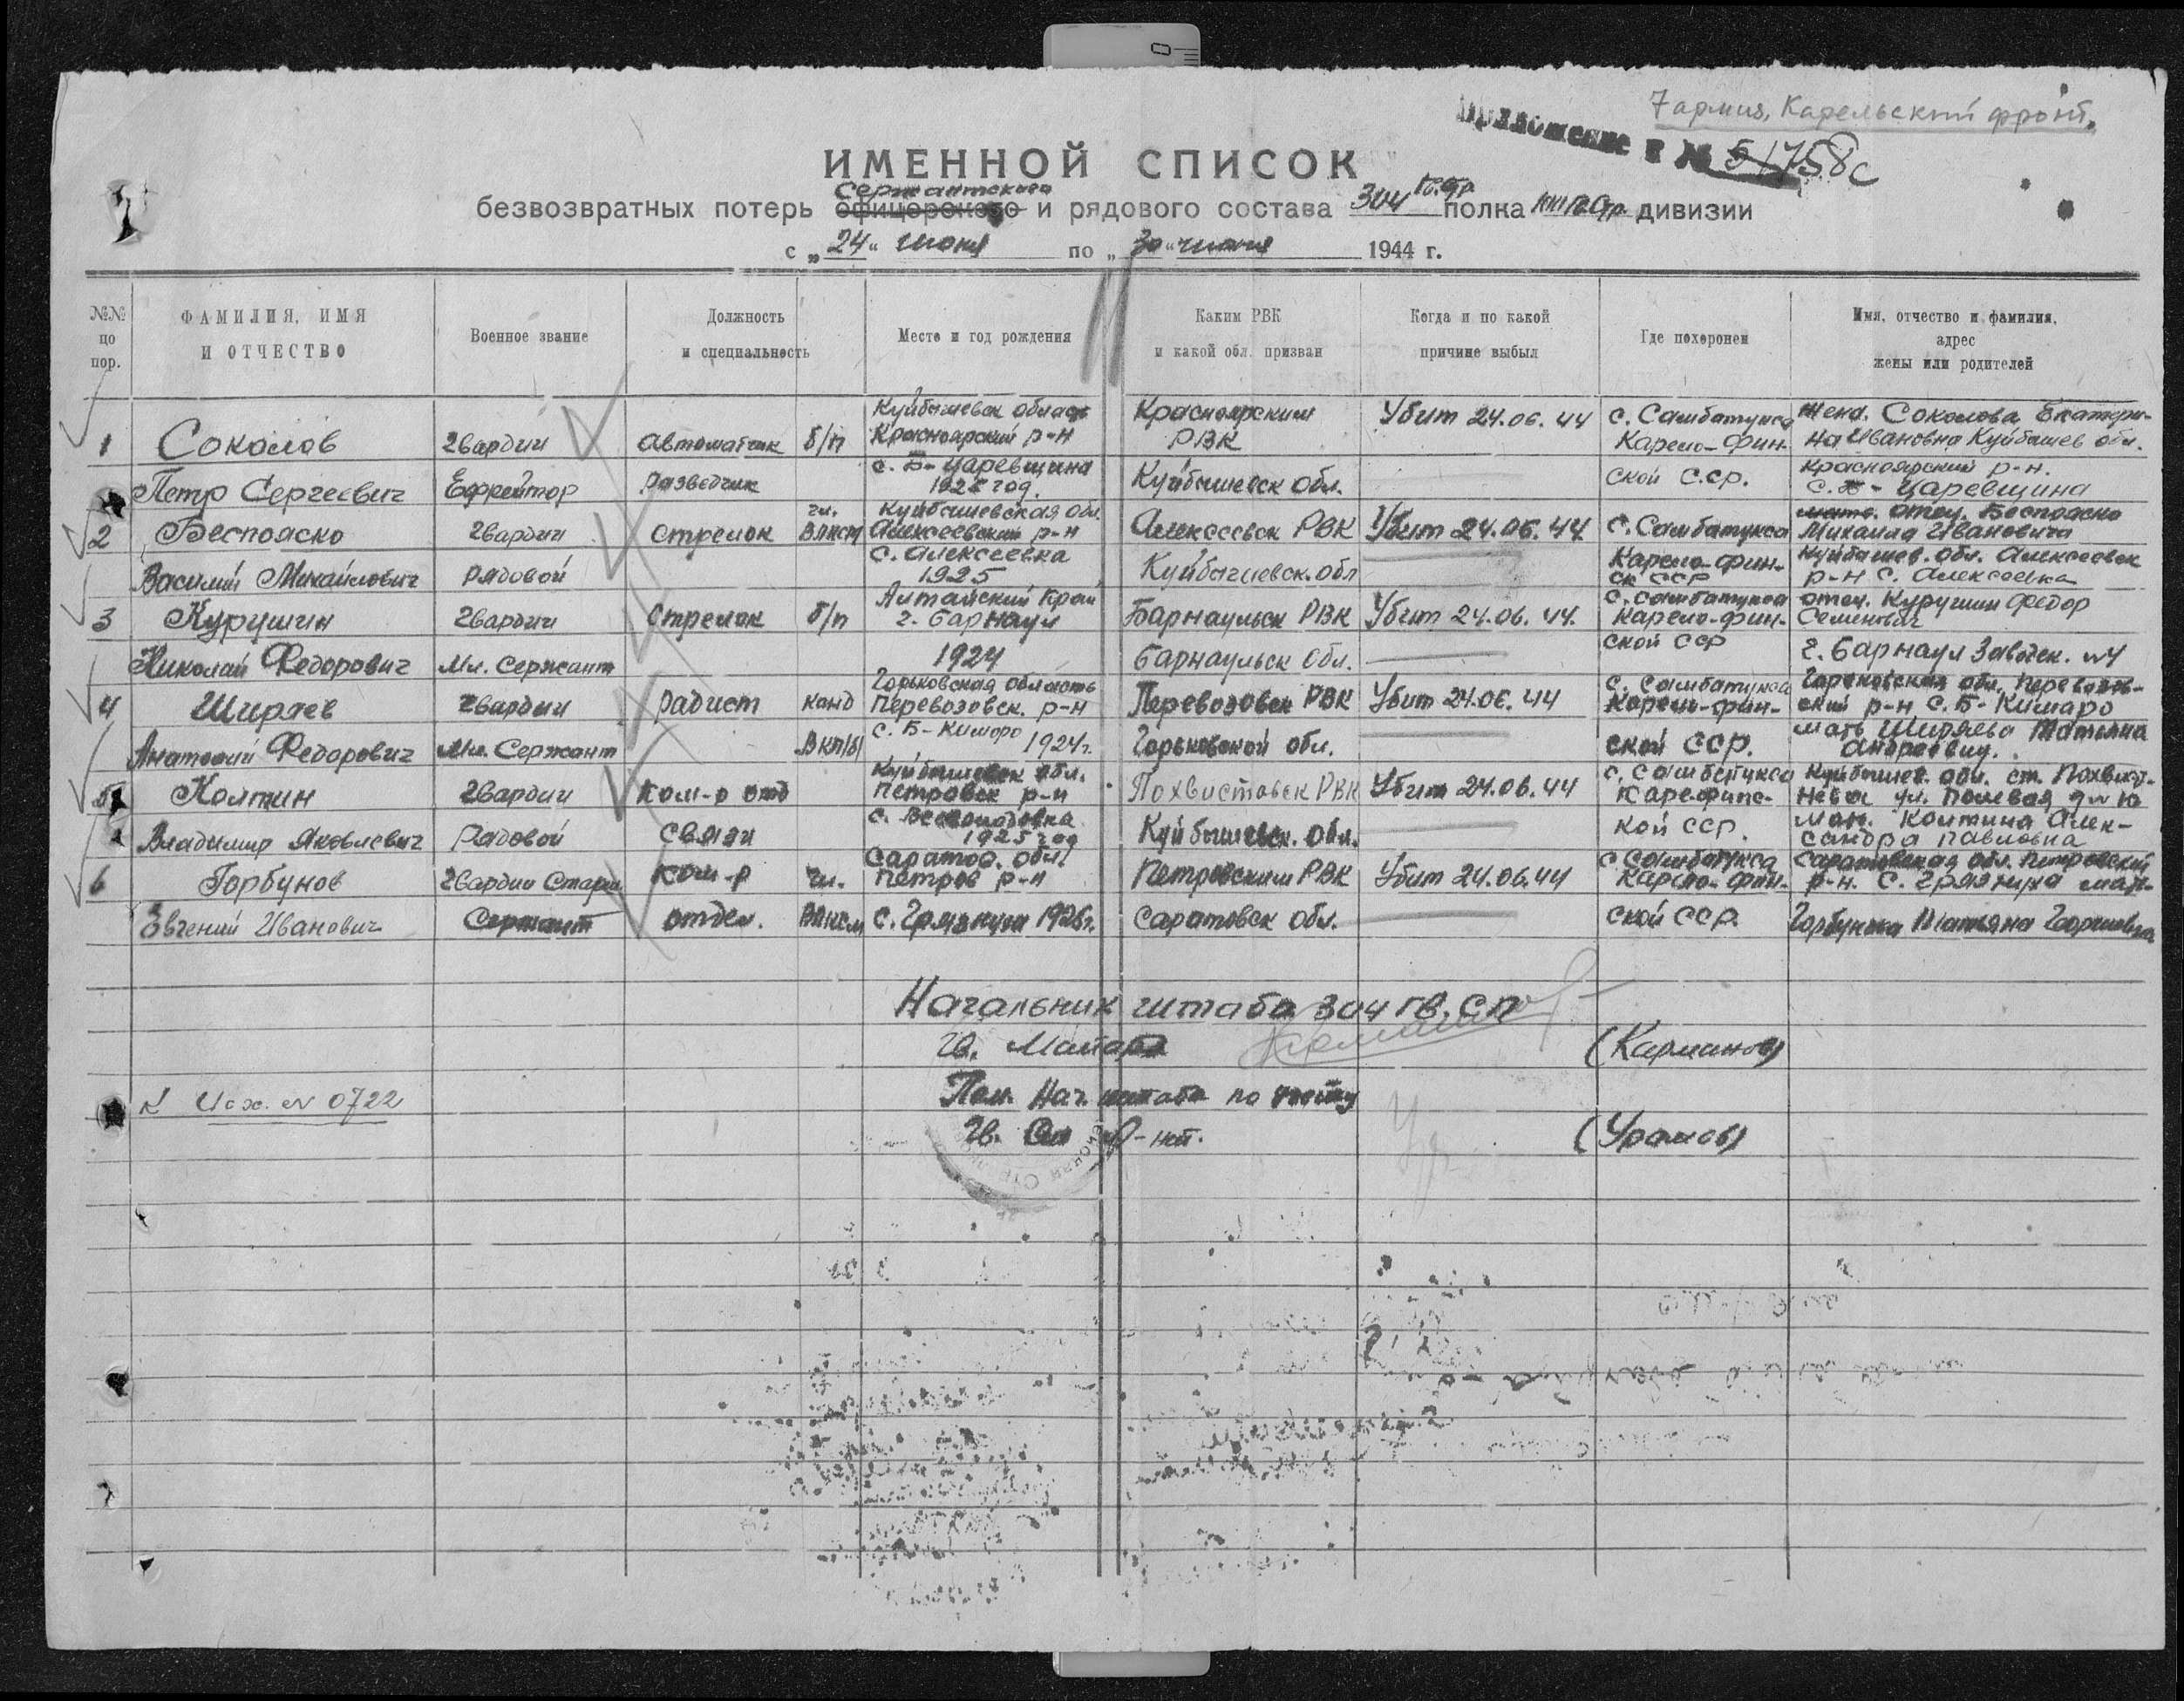 7 армия, Карельский фронт.
Приложение к № 51758с
ИМЕННОЙ СПИСОК
Сержантского
безвозвратных потерь офицерского и рядового состава 304 гв. стр. полка гв. стр. дивизии
с „24" июня по „30" июня 1944 г.
№№ по пор.
ФАМИЛИЯ, ИМЯ И ОТЧЕСТВО
Военное звание
Должность и специальность
Место и год рождения
Каким РВК и какой обл. призван
Когда и по какой причине выбыл
Где похоронен
Имя, отчество и фамилия, адрес жены или родителей
1 Соколов Петр Сергеевич
Гвардии Ефрейтор
Автоматчик Разведчик
б/п
Куйбышевск область Красноярский р-н с. Б-Царевщина 192 год.
Красноярским РВК Куйбышевск обл.
Убит 24.06.44
с. Самбатукса Карело-Финской С.С.Р.
Жена. Соколова Екатерина Ивановна Куйбышев обл. Красноярский р-н. с. Б-Царевщина
2 Беспояско Василий Михайлович
Гвардии рядовой
Стрелок
чл. ВЛКСМ
Куйбышевская обл. Алексеевский р-н с. Алексеевка 1925
Алексеевск РВК Куйбышевск. обл
Убит 24.06.44
с. Самбатукса Карело-Финск ССР
отец. Беспояско Михаила Ивановича Куйбышев. обл. Алексеевск р-н с. Алексеевка
3 Курушин Николай Федорович
Гвардии Мл. Сержант
Стрелок
б/п
Алтайский Край г. Барнаул 1924
Барнаульск РВК Барнаульск Обл.
Убит 24.06.44.
с. Самбатукса Карело-Финской ССР
отец. Курушин Федор Семенович г. Барнаул Заводск. №4
4 Ширяев Анатолий Федорович
Гвардии Мл. Сержант
радист
канд ВКП/б/
Горьковская область Перевозовск. р-н с. Б-Кимаро 1924г.
Перевозовск РВК Горьковской обл.
Убит 24.06.44
с. Самбатукса Карело-Финской ССР.
Горьковская обл. Перевозовский р-н с. Б-Кимаро мать Ширяева Татьяна Андреевну.
5 Колтин Владимир Яковлевич
Гвардии Рядовой
Ком-р отд связи
Куйбышевск обл. Петровск р-н с. 1925 год
Похвистовск РВК Куйбышевск. обл.
Убит 24.06.44
с. Самбатукса Каре-Финской ССР.
Куйбышев. обл. ст. Похвистнево ул. Полевая д № 10 мат. Колтина Александра Павловна
6 Горбунов Евгений Иванович
Гвардии Старш Сержант
Ком-р отдел.
чл. ВЛКСМ
Саратов. обл. Петров р-н с. Грязнуха 192 г.
Петровским РВК Саратовск обл.
Убит 24.06.44
с Самбатукса Карело-Финской ССР.
Саратовская обл. Петровский р-н. с. Грязнуха мать Горбунова Татьяна Георгиевна
Начальник штаба 304 гв. СП
Гв. Майор (Карманов)
К Исх. № 0722
Пом. Нач. штаба по учету
Гв. л-нт. (Урамов)